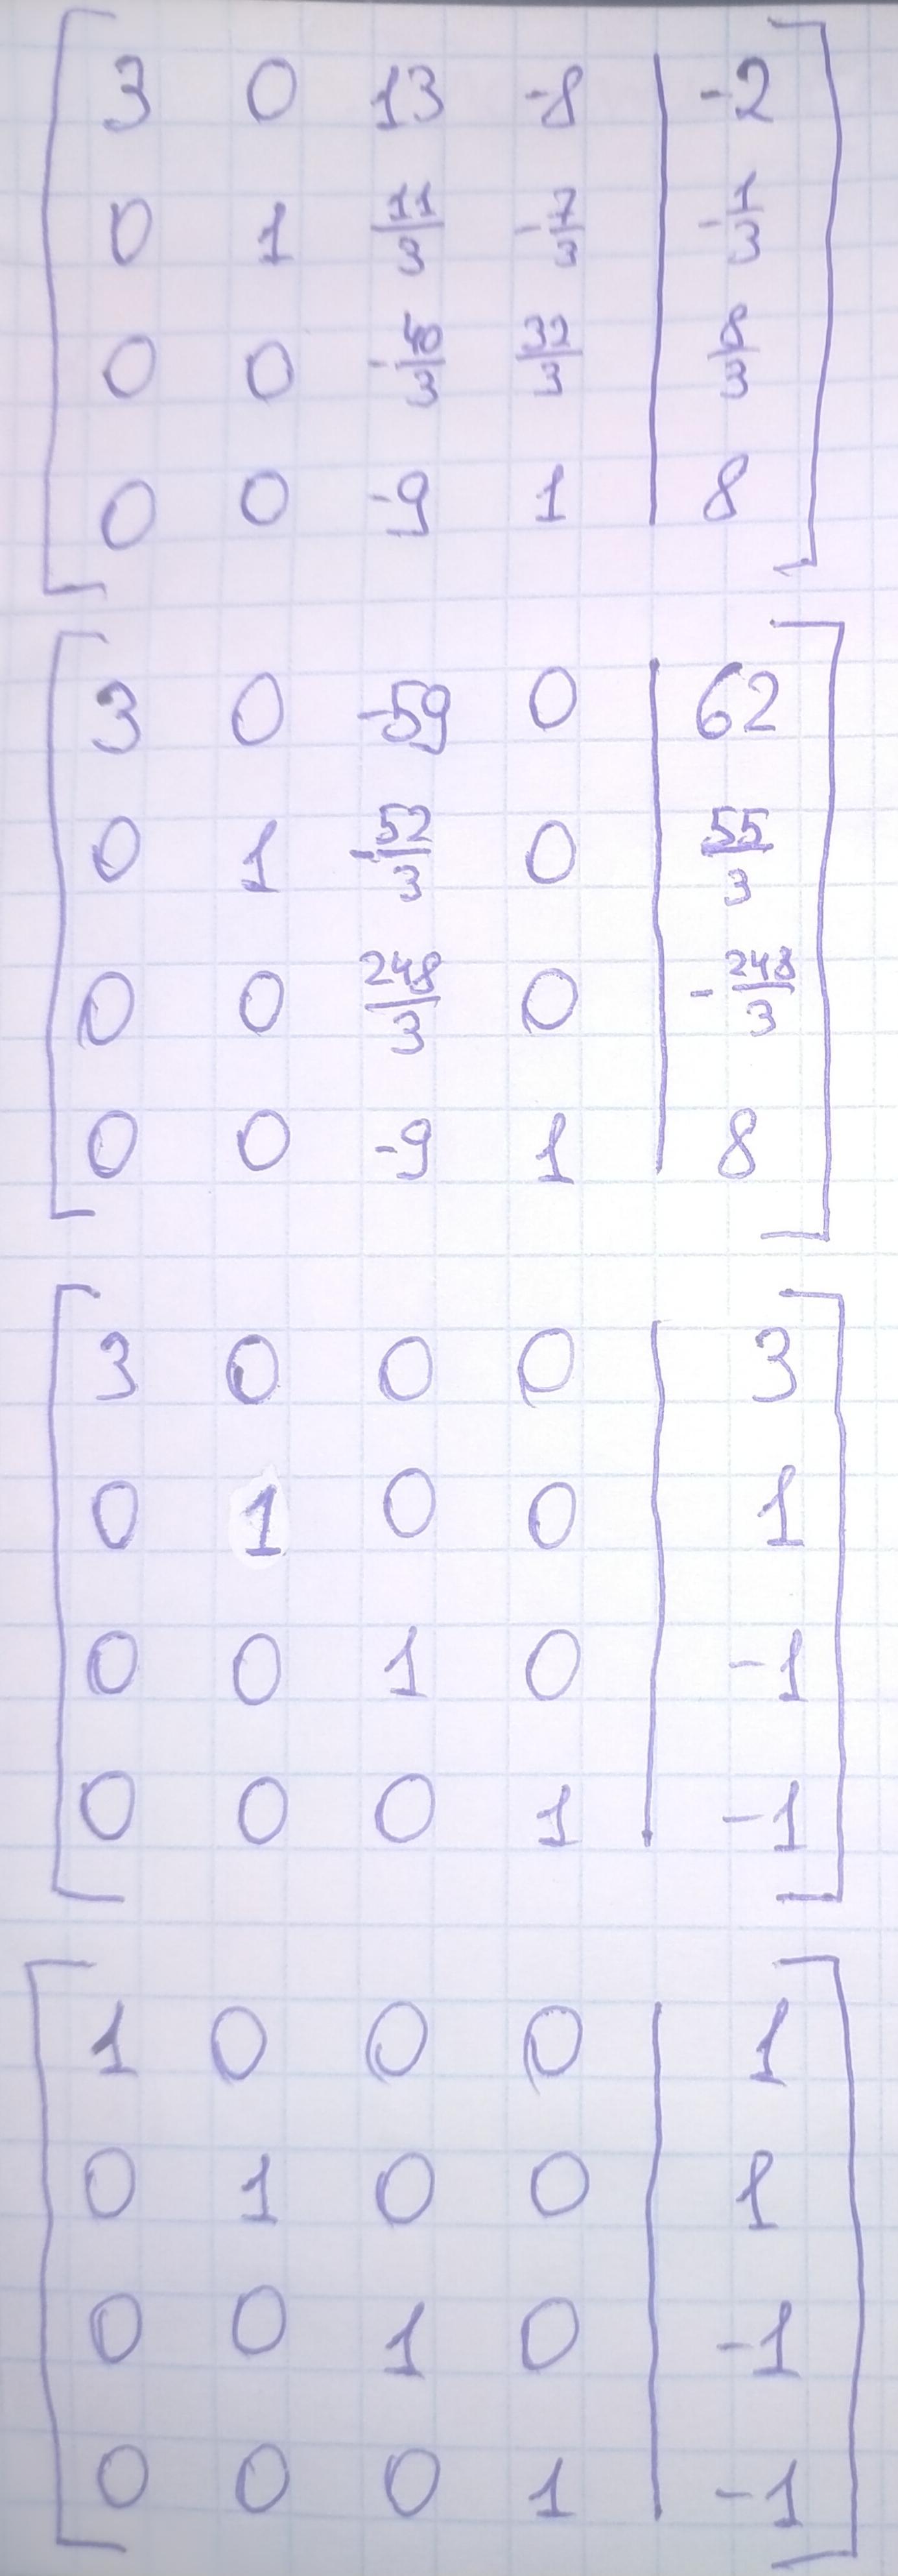 3 0 13 -8 | -2
0 1 11/3 -7/3 | -1/3
0 0 -40/3 32/3 | 8/3
0 0 -9 1 | 8
3 0 -59 0 | 62
0 1 -52/3 0 | 55/3
0 0 248/3 0 | -248/3
0 0 -9 1 | 8
3 0 0 0 | 3
0 1 0 0 | 1
0 0 1 0 | -1
0 0 0 1 | -1
1 0 0 0 | 1
0 1 0 0 | 1
0 0 1 0 | -1
0 0 0 1 | -1